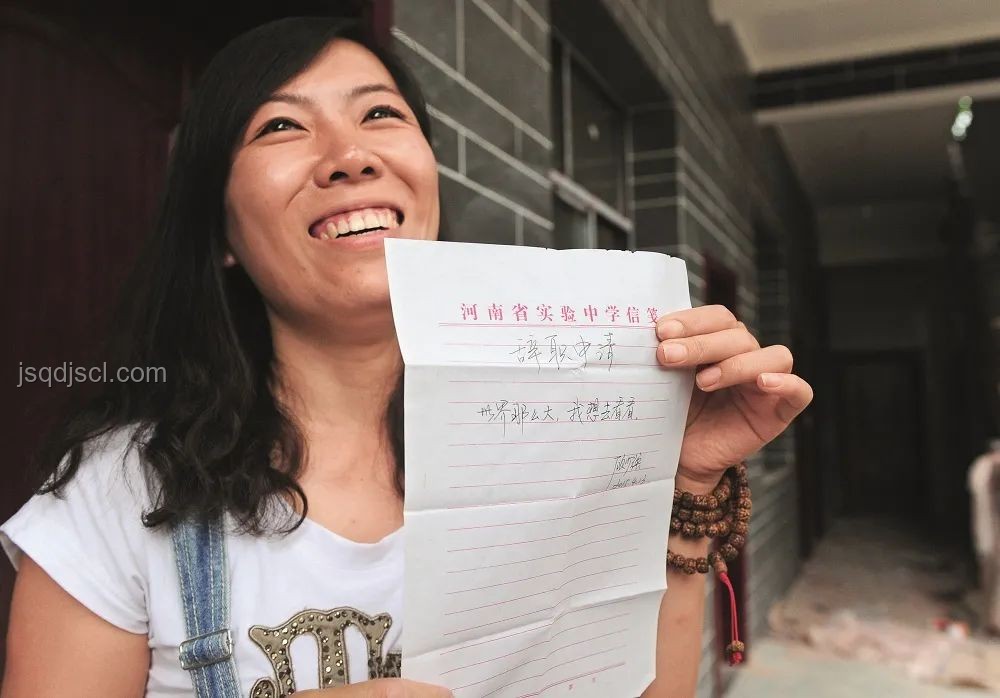 河南省实验中学信笺
辞职申请
世界那么大，我想去看看。
jsqdjscl.com